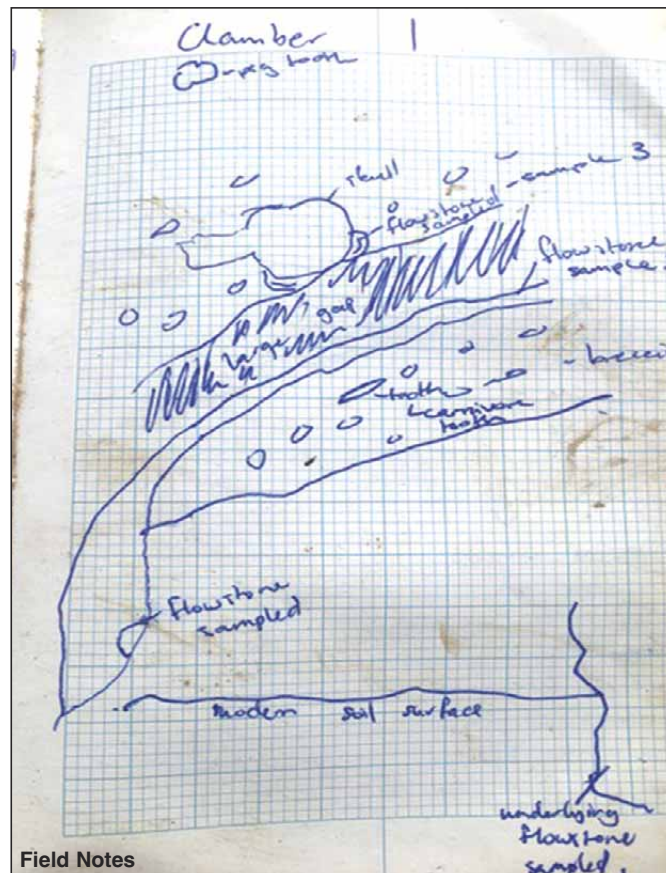 Chamber 1
-peg tooth
skull
-sample 3
flowstone
sampled
flowstone
sample.
large gap
-breccia
-tooth
carnivore
tooth
flowstone
sampled
modern soil surface
underlying
flowstone
sampled.
Field Notes